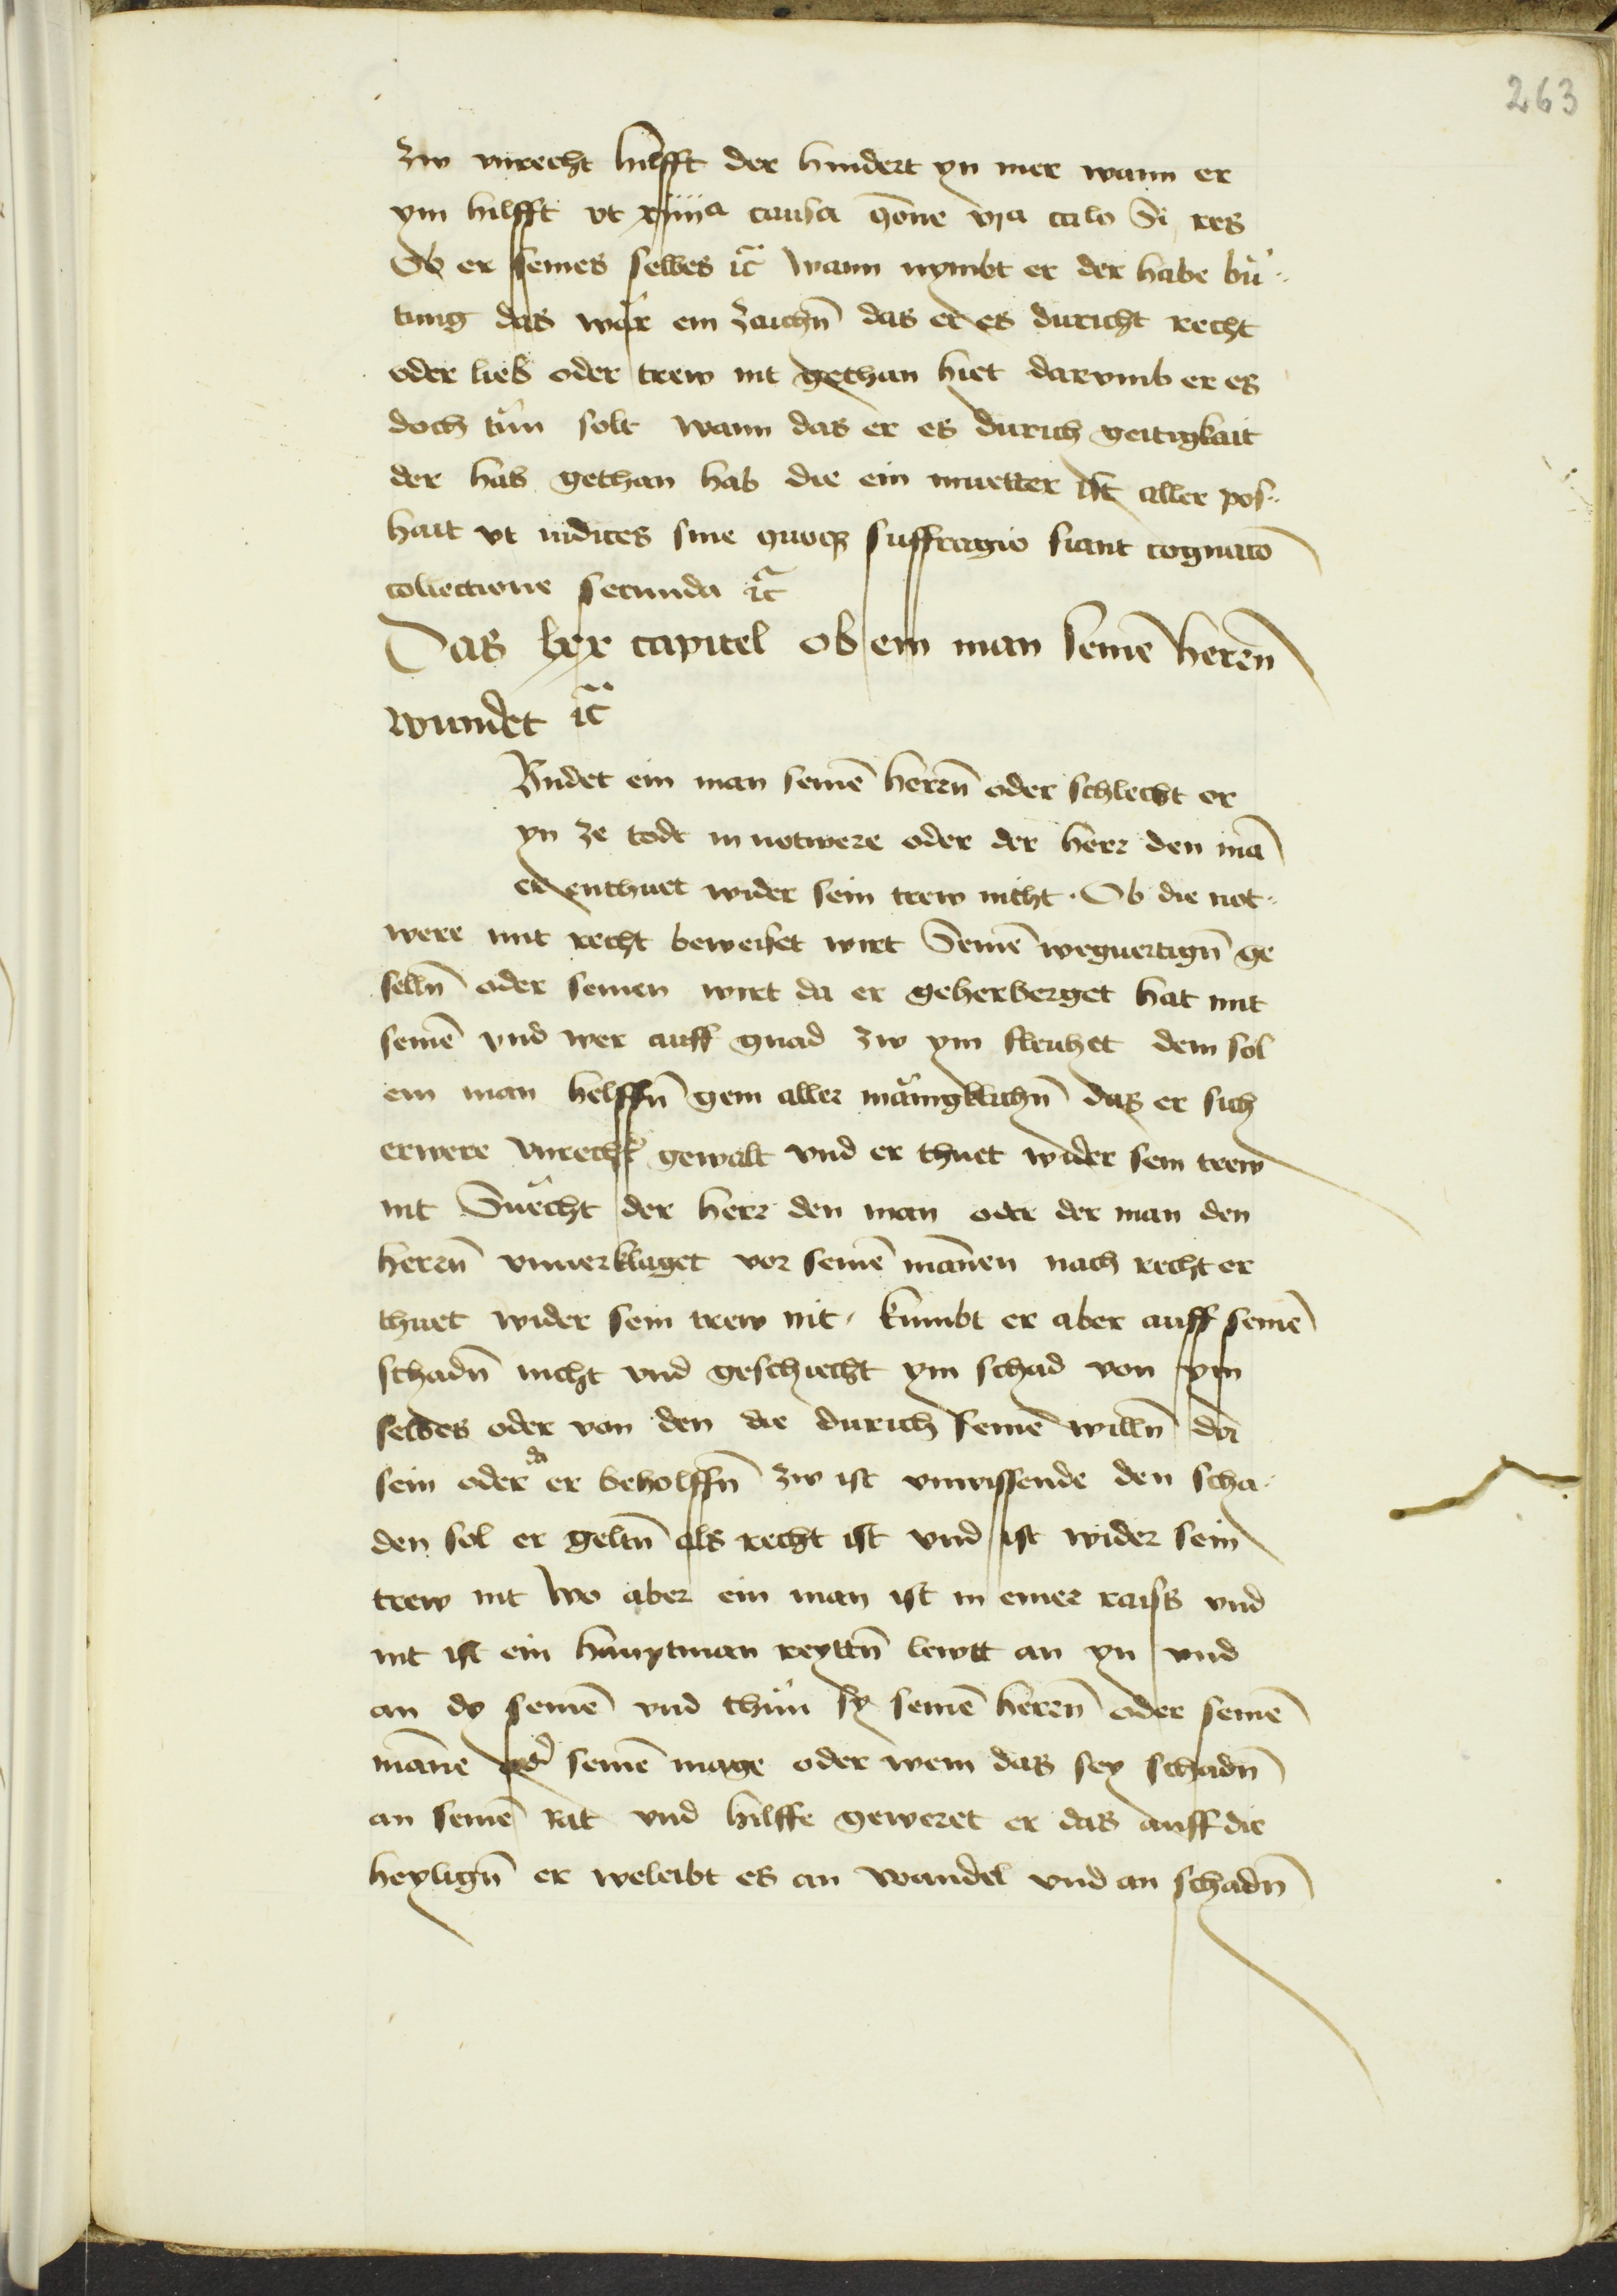 263
zw vnrecht hilfft der hindert yn mer wann er
ym hilfft vt xiiiia causa qōne via calo Si res
Ob er seines selbes ꝛc̃ wann nymbt er der habe bü¨
tung das wär ein zaichn̄ das er es duricht recht
oder lieb oder trew nit gethan hiet darvmb er es
doch tün solt wann das er es durich geitigkait
der hab gethan hab die ein muetter ist aller pos¨
hait vt iudices sine quoqȝ suffragio fiant cognatō
collectione secunda ꝛc̃
Das lxx capitel ob ein man seinē heren̄
wundet ꝛc̃
Vndet ein man seinē herrn̄ oder schlecht er
yn ze todt in notwere oder der herr den mā
er enthuet wider sein trew nicht · Ob die not¨
were mit recht beweiset wirt Seinē weguertign̄ ge
selln̄ oder seinen wirt da er geherberget hat mit
seinē vnd wer auff gnad zw ym fleuhet dem sol
ein man helffn̄ gein aller mänigklichn̄ das er sich
erwere vnrechtꝰ gewalt vnd er thuet wider sein trew
nit Suecht der herr den man oder der man den
herrn̄ vnuerklaget vor seinē mānen nach recht er
thuet wider sein trew nit · kumbt er aber auff seinē
schadn̄ nicht vnd geschiecht ym schad von ym
selbes oder von den die durich seinē willn̄ da
sein oder da er beholffn̄ zw ist vnwissende den scha¨
den sol er geltn̄ als recht ist vnd ist wider sein
trew nit Wo aber ein man ist in einer raiss vnd
nit ist ein hauptman reyttn̄ lewtt an yn vnd
an dy seinē vnd thün sy seinē heren̄ oder seinē
māne odꝰ seinē mage oder wem das sey schadn̄
an seinē Rat vnd hilffe geweret er das auff die
heylign̄ er weleibt es an wandel vnd an schadn̄